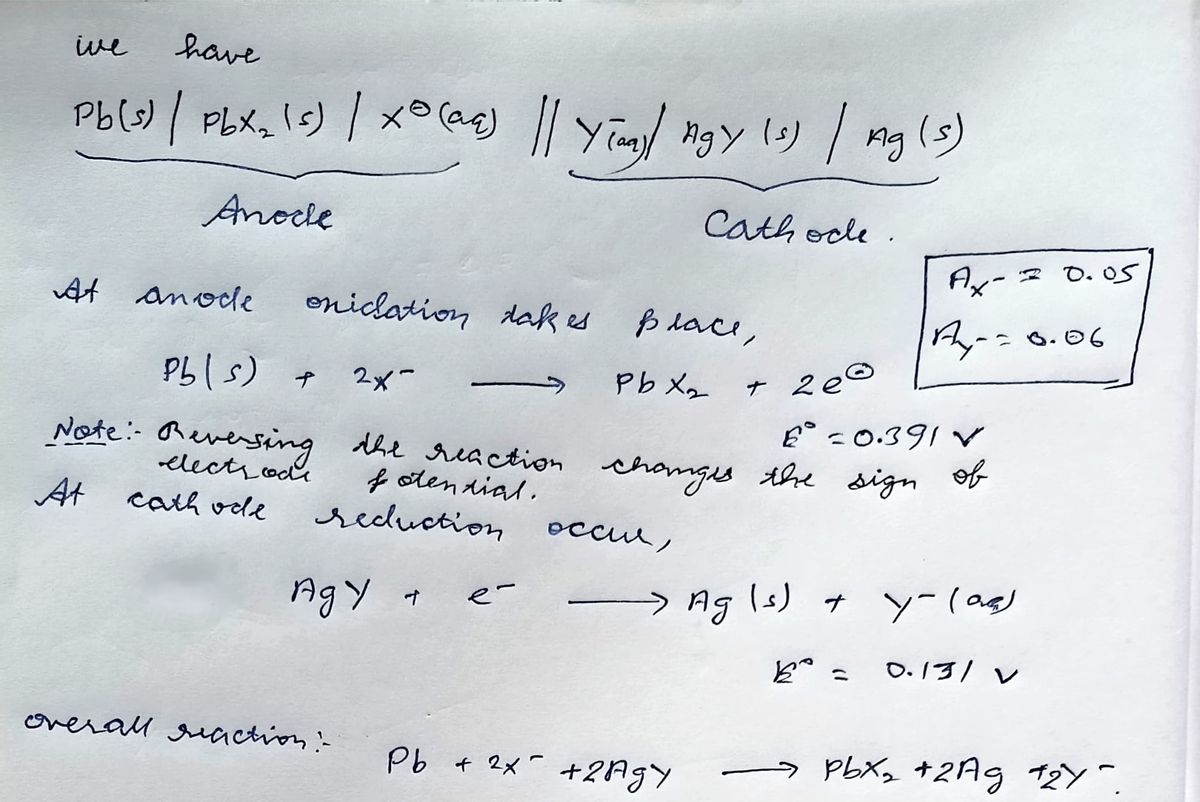 we have
Pb(s) | PbX₂ (s) | X⊖(aq) || Y⁻(aq) | AgY (s) | Ag (s)
Anode
Cathode.
Ax- = 0.05
Ay- = 0.06
At anode oxidation takes place,
Pb(s) + 2x⁻ ⟶ PbX₂ + 2e⊖
E° = 0.391 V
Note:- Reversing the reaction changes the sign of
electrode potential.
At cathode reduction occur,
AgY + e⁻ ⟶ Ag (s) + Y⁻ (aq)
E° = 0.131 V
overall reaction:-
Pb + 2x⁻ + 2AgY ⟶ PbX₂ + 2Ag + 2Y⁻.